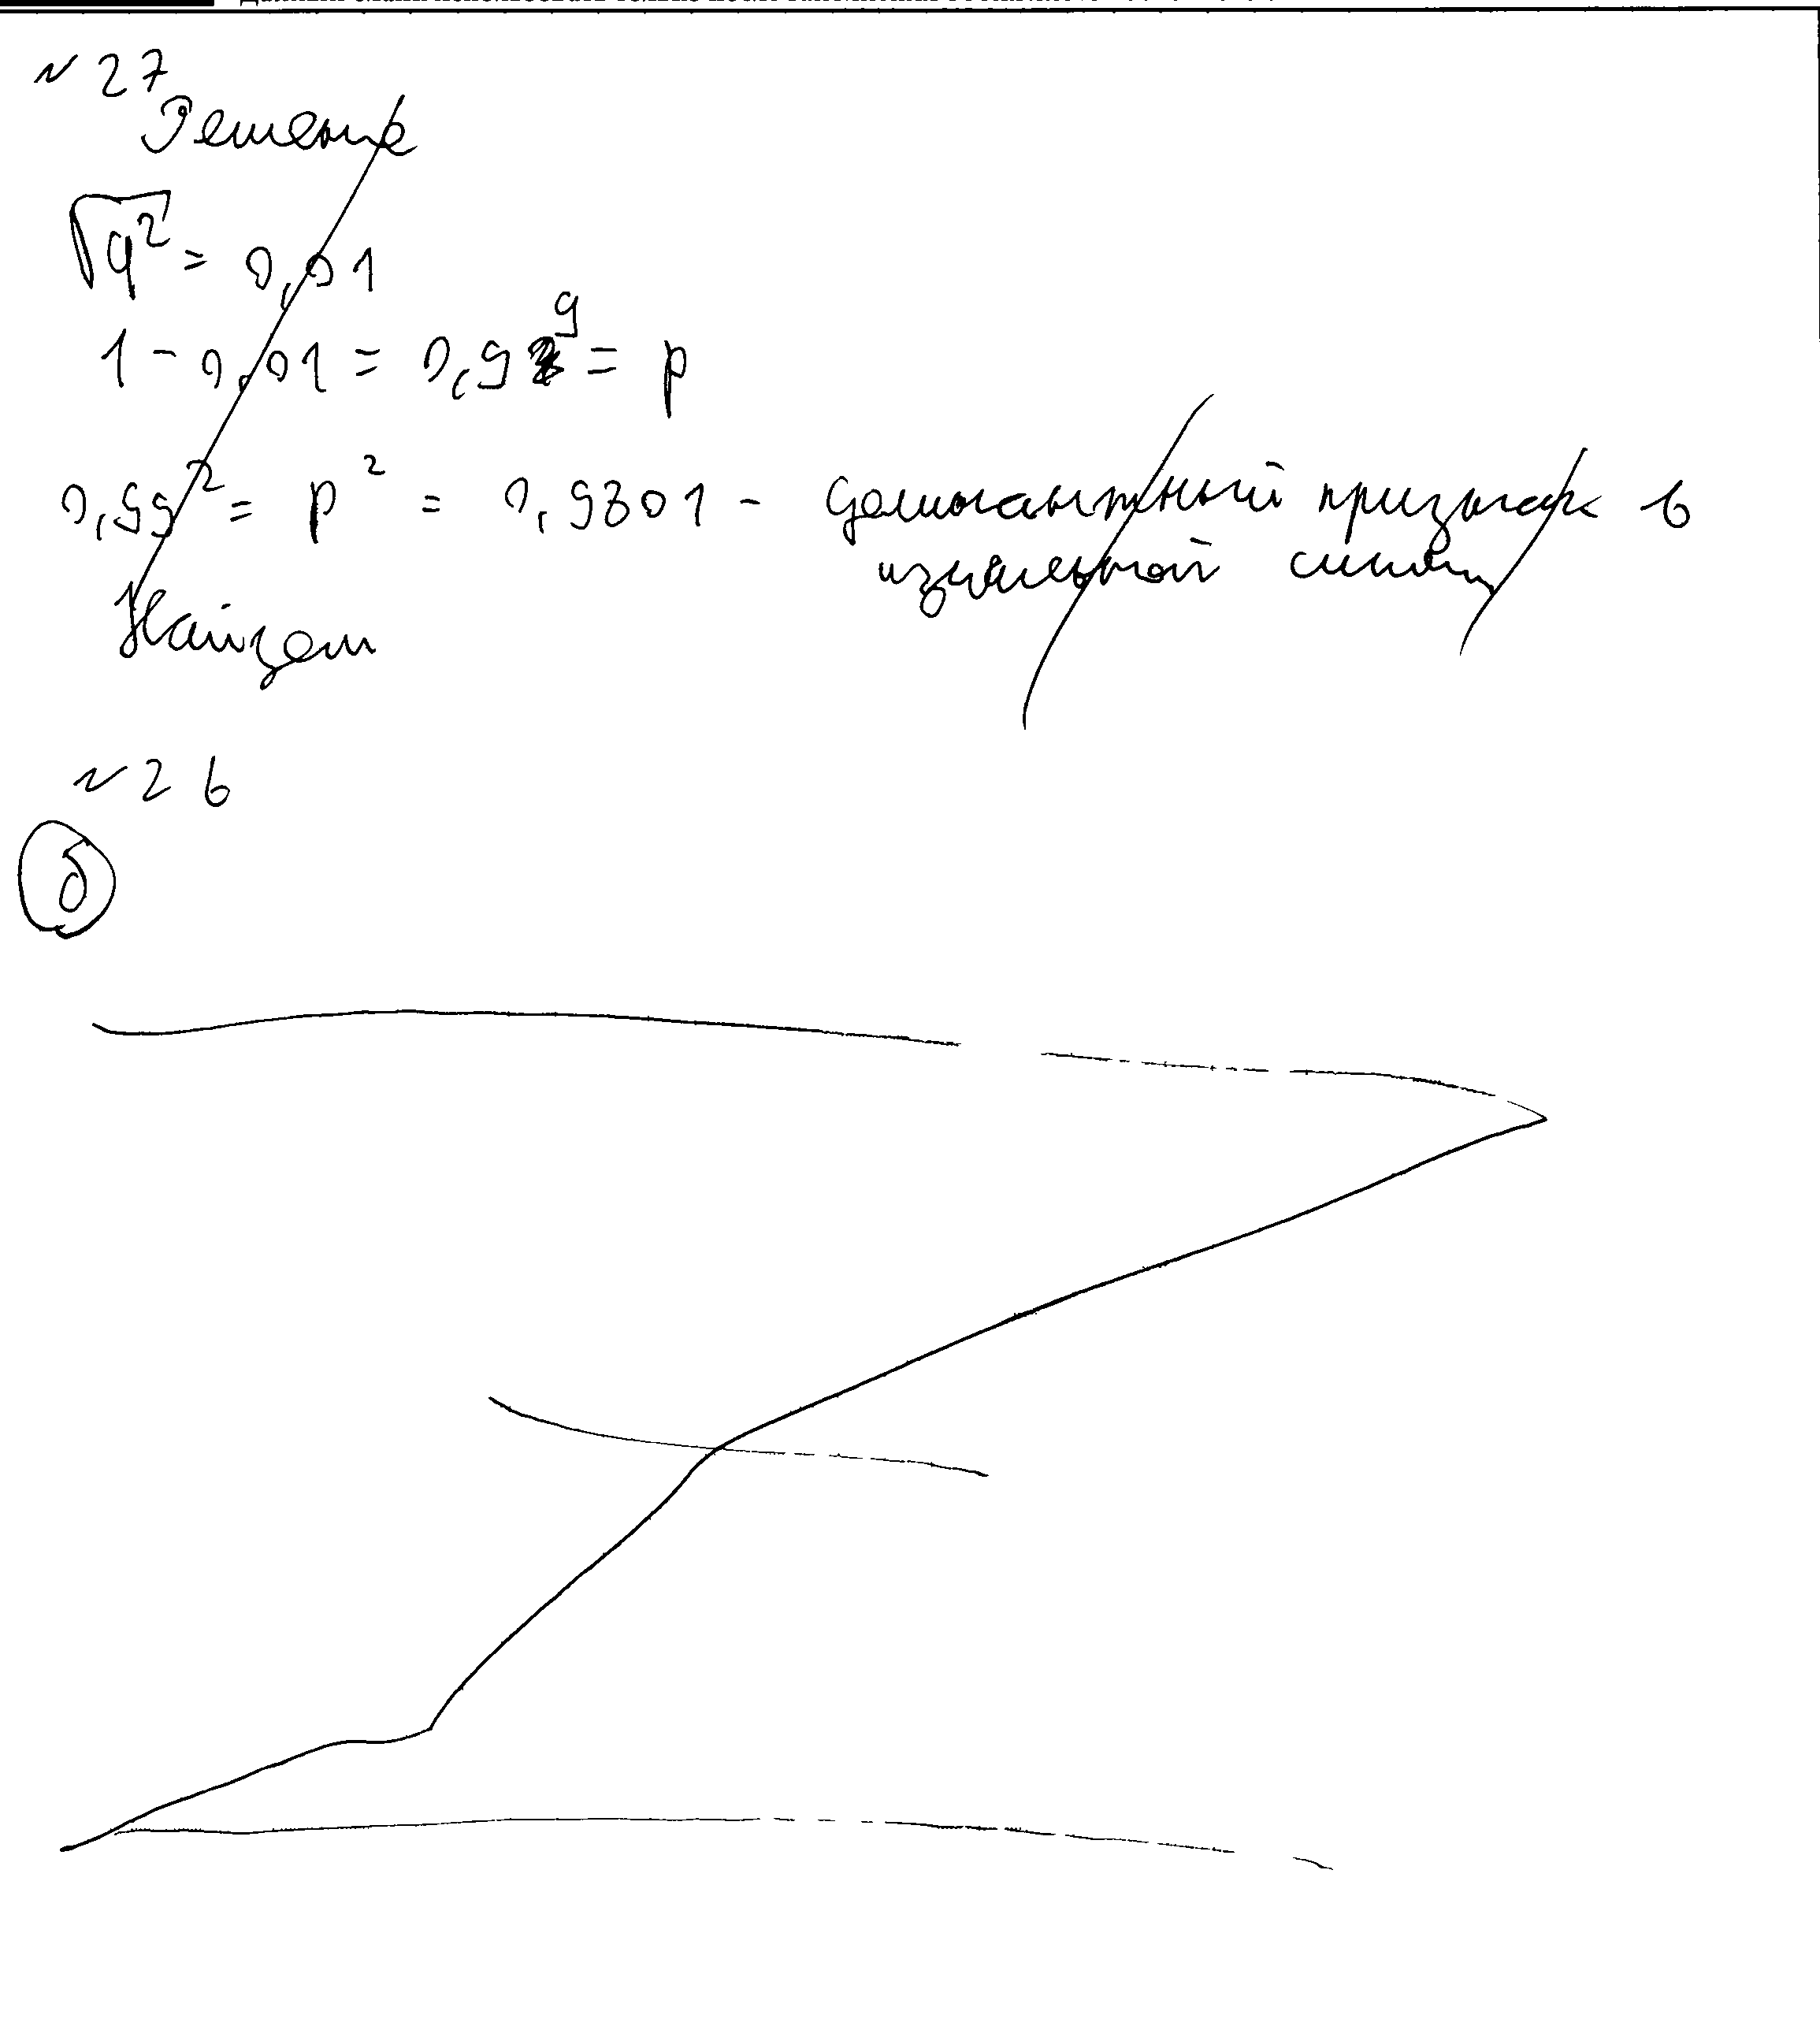 № 27
Решение
√q² = 0,01
1 - 0,01 = 0,99 = p
0,99² = p² = 0,9801 - доминантный признак в
Найдем
№ 26
б